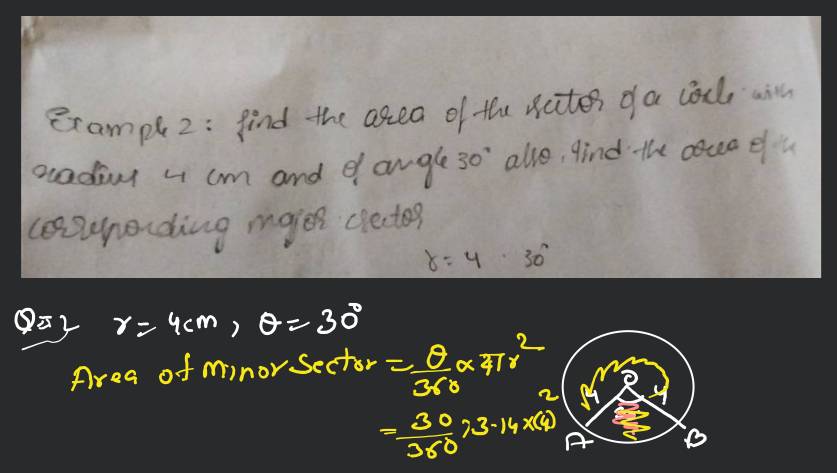 Example 2: find the area of the sector of a circle with
radius 4 cm and of angle 30° also, find the area of the
corresponding major sector
r = 4 . 30°
Q=2 r = 4cm, θ = 30°
Area of minor sector = θ/360 × πr²
= 30/360 × 3.14 × (4)²
4 4
A B